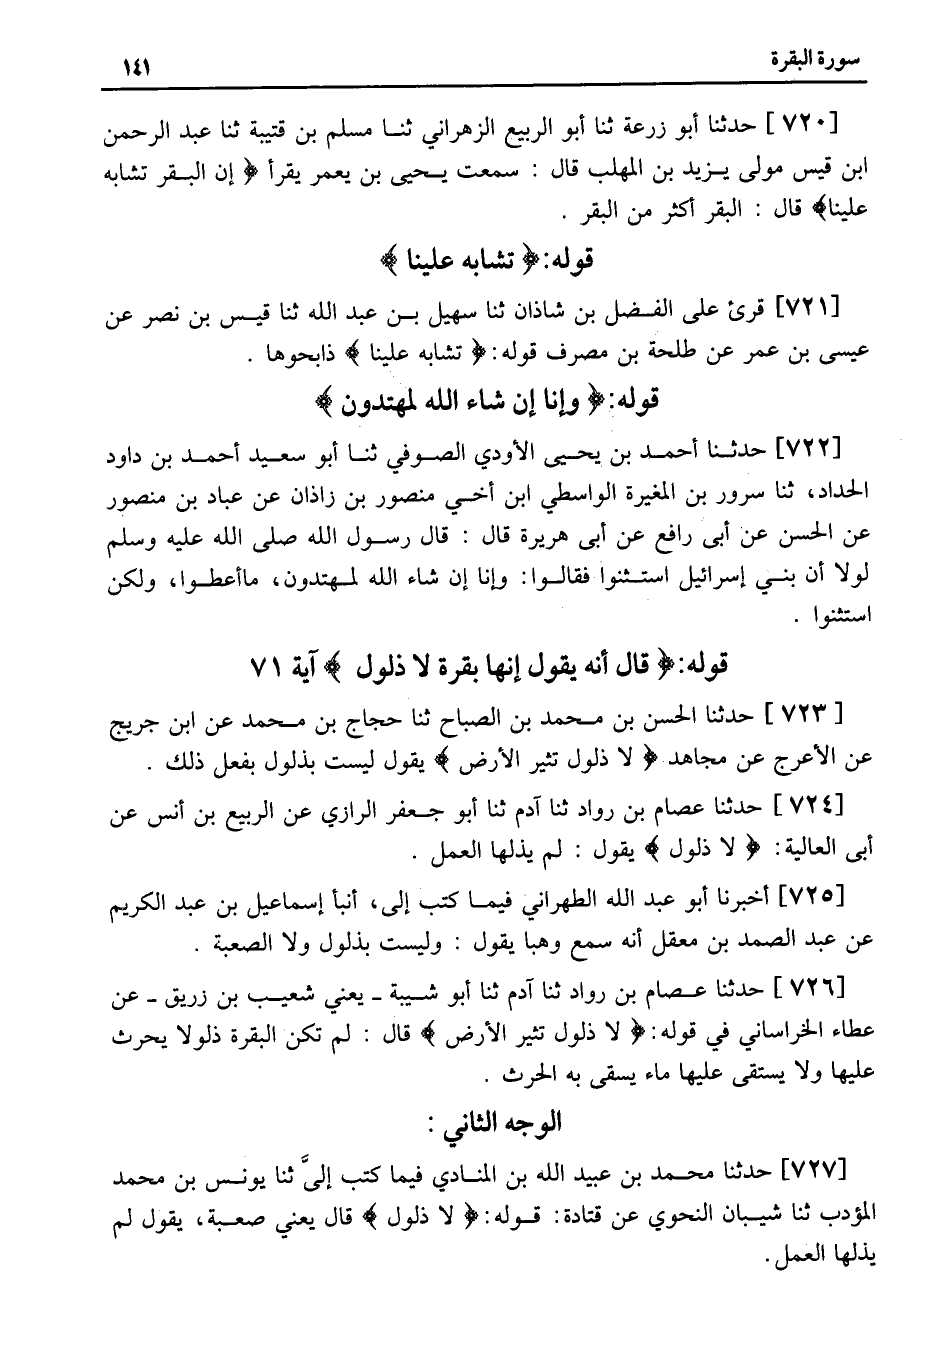 سورة البقرة
١٤١
[٧٢٠] حدثنا أبو زرعة ثنا أبو الربيع الزهراني ثنا مسلم بن قتيبة ثنا عبد الرحمن
ابن قيس مولى يزيد بن المهلب قال : سمعت يحيى بن يعمر يقرأ ﴿ إن البقر تشابه
علينا﴾ قال : البقر أكثر من البقر .
قوله:﴿ تشابه علينا ﴾
[٧٢١] قرئ على الفضل بن شاذان ثنا سهيل بن عبد الله ثنا قيس بن نصر عن
عيسى بن عمر عن طلحة بن مصرف قوله:﴿ تشابه علينا ﴾ ذابحوها .
قوله:﴿ وإنا إن شاء الله لمهتدون ﴾
[٧٢٢] حدثنا أحمد بن يحيى الأودي الصوفي ثنا أبو سعيد أحمد بن داود
الحداد، ثنا سرور بن المغيرة الواسطي ابن أخي منصور بن زاذان عن عباد بن منصور
عن الحسن عن أبى رافع عن أبى هريرة قال : قال رسول الله صلى الله عليه وسلم
لولا أن بني إسرائيل استثنوا فقالوا: وإنا إن شاء الله لمهتدون، ماأعطوا، ولكن
استثنوا .
قوله:﴿ قال أنه يقول إنها بقرة لا ذلول ﴾ آية ٧١
[٧٢٣ ] حدثنا الحسن بن محمد بن الصباح ثنا حجاج بن محمد عن ابن جريج
عن الأعرج عن مجاهد ﴿ لا ذلول تثير الأرض ﴾ يقول ليست بذلول بفعل ذلك .
[٧٢٤] حدثنا عصام بن رواد ثنا آدم ثنا أبو جعفر الرازي عن الربيع بن أنس عن
أبى العالية: ﴿ لا ذلول ﴾ يقول : لم يذلها العمل .
[٧٢٥] أخبرنا أبو عبد الله الطهراني فيما كتب إلى، أنبأ إسماعيل بن عبد الكريم
عن عبد الصمد بن معقل أنه سمع وهبا يقول : وليست بذلول ولا الصعبة .
[٧٢٦] حدثنا عصام بن رواد ثنا آدم ثنا أبو شيبة ـ يعني شعيب بن زريق ـ عن
عطاء الخراساني في قوله:﴿ لا ذلول تثير الأرض ﴾ قال : لم تكن البقرة ذلولا يحرث
عليها ولا يستقى عليها ماء يسقى به الحرث .
الوجه الثاني :
[٧٢٧] حدثنا محمد بن عبيد الله بن المنادي فيما كتب إلىَّ ثنا يونس بن محمد
المؤدب ثنا شيبان النحوي عن قتادة: قوله:﴿ لا ذلول ﴾ قال يعني صعبة، يقول لم
يذلها العمل.